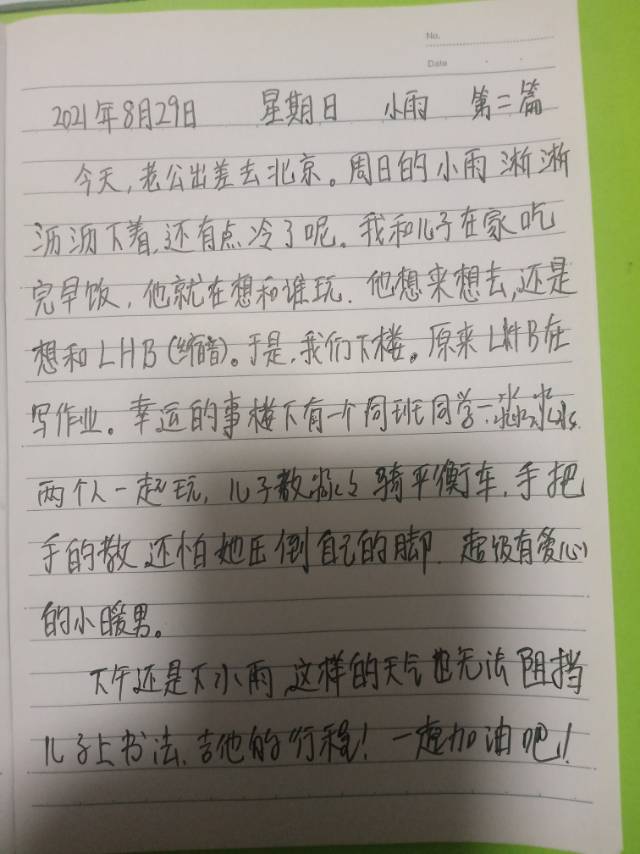 No.
Date
2021年8月29日 星期日 小雨 第二篇
今天,老公出差去北京。周日的小雨淅淅
沥沥下着,还有点冷了呢。我和儿子在家吃
完早饭,他就在想和谁玩.他想来想去,还是
想和LHB(缩音)。于是,我们下楼。原来LHB在
写作业。幸运的事楼下有一个同班同学一淼淼.
两个人一起玩,儿子教淼淼骑平衡车,手把
手的教,还怕她压倒自己的脚.超级有爱心
的小暖男。
下午还是下小雨,这样的天气也无法阻挡
儿子上书法、吉他的行程!一起加油吧!